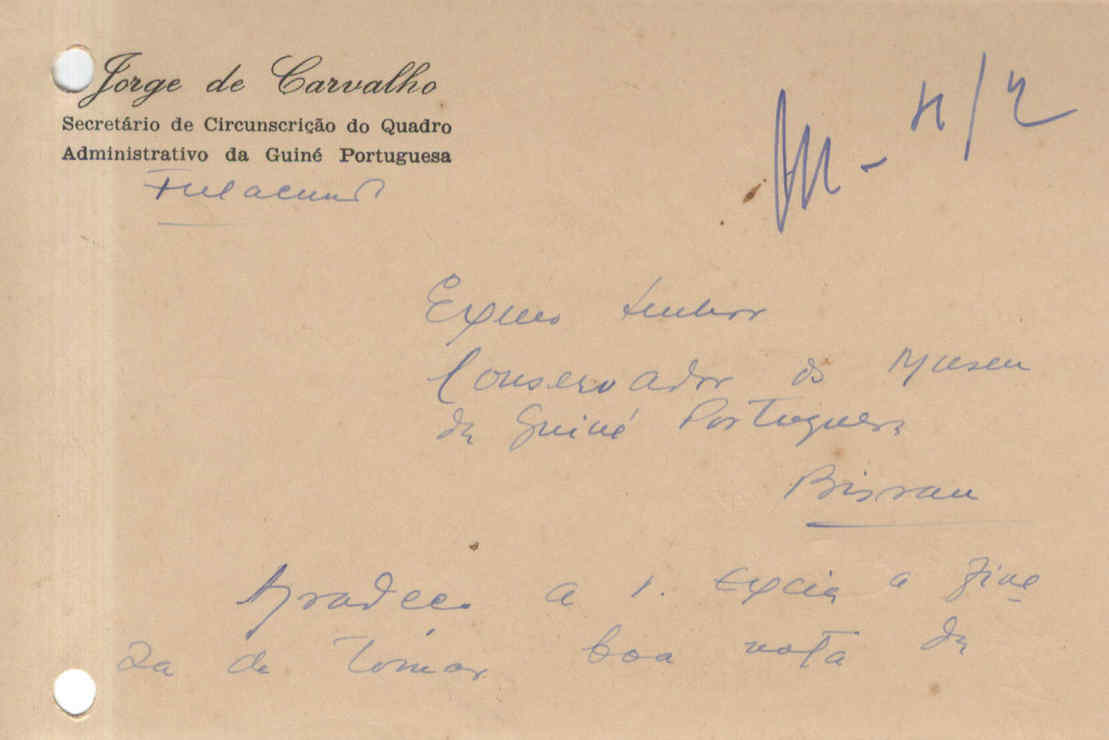 Jorge de Carvalho
Secretário de Circunscrição do Quadro
Administrativo da Guiné Portuguesa
Fulacunda
4/2
Exmo Senhor
Conservador do Museu
da Guiné Portuguesa
Bissau
Agradeço a V. Excia a fine
za de tomar boa nota da